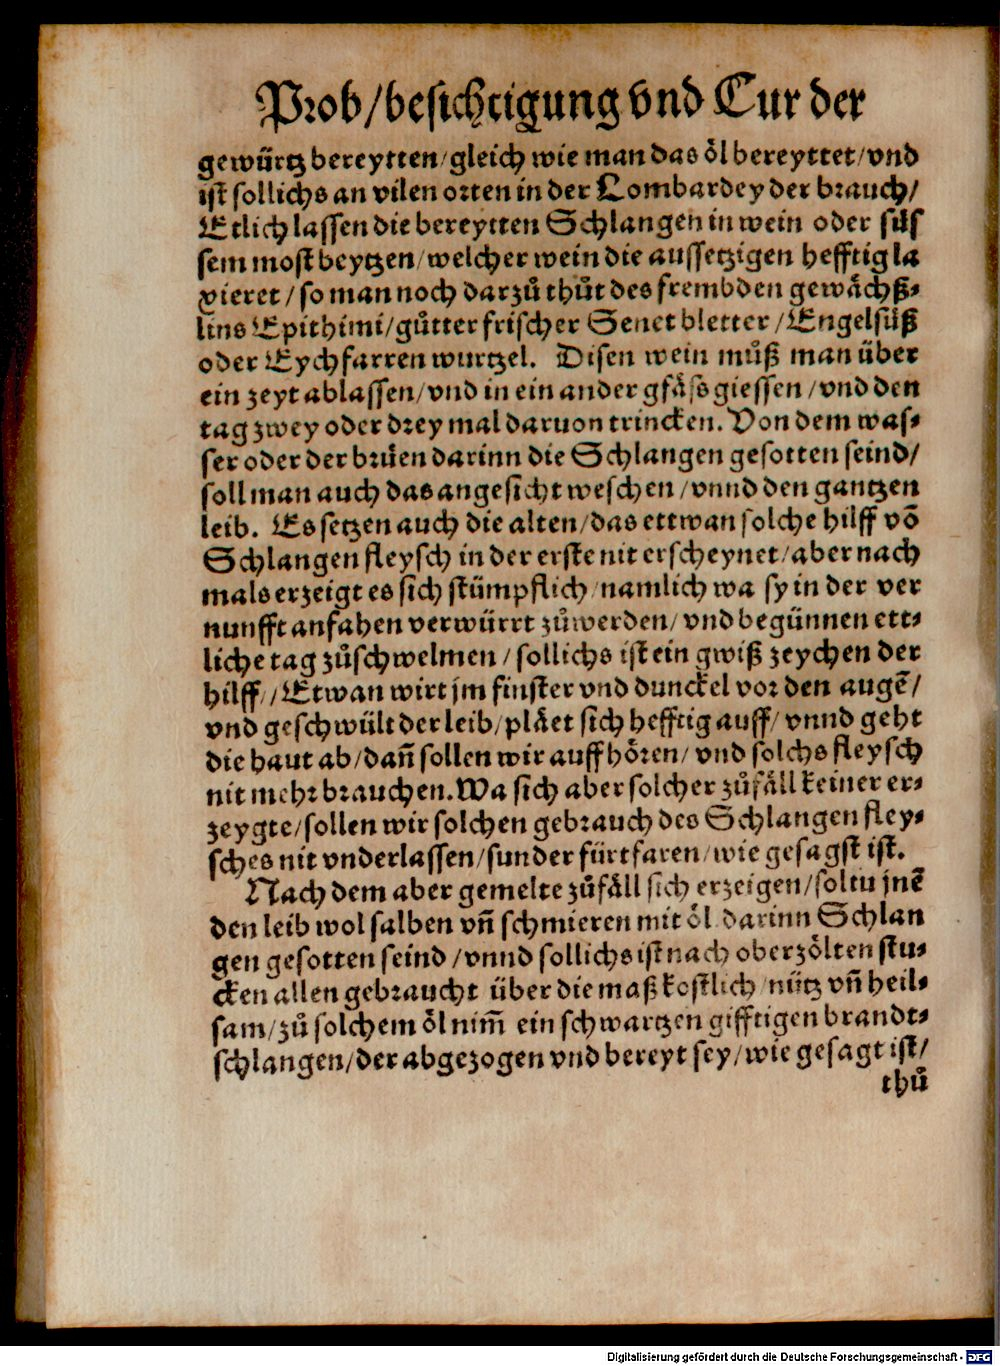 Prob/besichtigung vnd Cur der
gewürtz bereytten/gleich wie man das öl bereyttet/vnd
ist sollichs an vilen orten in der Lombardey der brauch/
Etlich lassen die bereytten Schlangen in wein oder süs
sem most beytzen/welcher wein die aussetzigen hefftig la
xieret/so man noch darzů thůt des frembden gewächß⸗
lins Epithimi/gůtter frischer Senet bletter/Engelsüß
oder Eychfarren wurtzel. Disen wein můß man über
ein zeyt ablassen/vnd in ein ander gfäss giessen/vnd den
tag zwey oder drey mal daruon trincken. Von dem was⸗
ser oder der brüen darinn die Schlangen gesotten seind/
soll man auch das angesicht weschen/vnnd den gantzen
leib. Es setzen auch die alten/das ettwan solche hilff võ
Schlangen fleysch in der erste nit erscheynet/aber nach
mals erzeigt es sich stümpflich/namlich wa sy in der ver
nunfft anfahen verwürrt zůwerden/vnd begünnen ett⸗
liche tag zůschwelmen/sollichs ist ein gwiß zeychen der
hilff//Etwan wirt jm finster vnd dunckel vor den augẽ/
vnd geschwült der leib/pläet sich hefftig auff/vnnd geht
die haut ab/dañ sollen wir auffhören/vnd solchs fleysch
nit mehr brauchen. Wa sich aber solcher zůfäll keiner er⸗
zeygte/sollen wir solchen gebrauch des Schlangen fley⸗
sches nit vnderlassen/sunder fürtfaren/wie gesagst ist.
Nach dem aber gemelte zůfäll sich erzeigen/soltu jnẽ
den leib wol salben vñ schmieren mit öl darinn Schlan
gen gesotten seind/vnnd sollichs ist nach oberzölten stu⸗
cken allen gebraucht über die maß kostlich/nütz vñ heil⸗
sam/zů solchem öl nim̃ ein schwartzen gifftigen brandt⸗
schlangen/der abgezogen vnd bereyt sey/wie gesagt ist/
thů
Digitalisierung gefördert durch die Deutsche Forschungsgemeinschaft - DFG